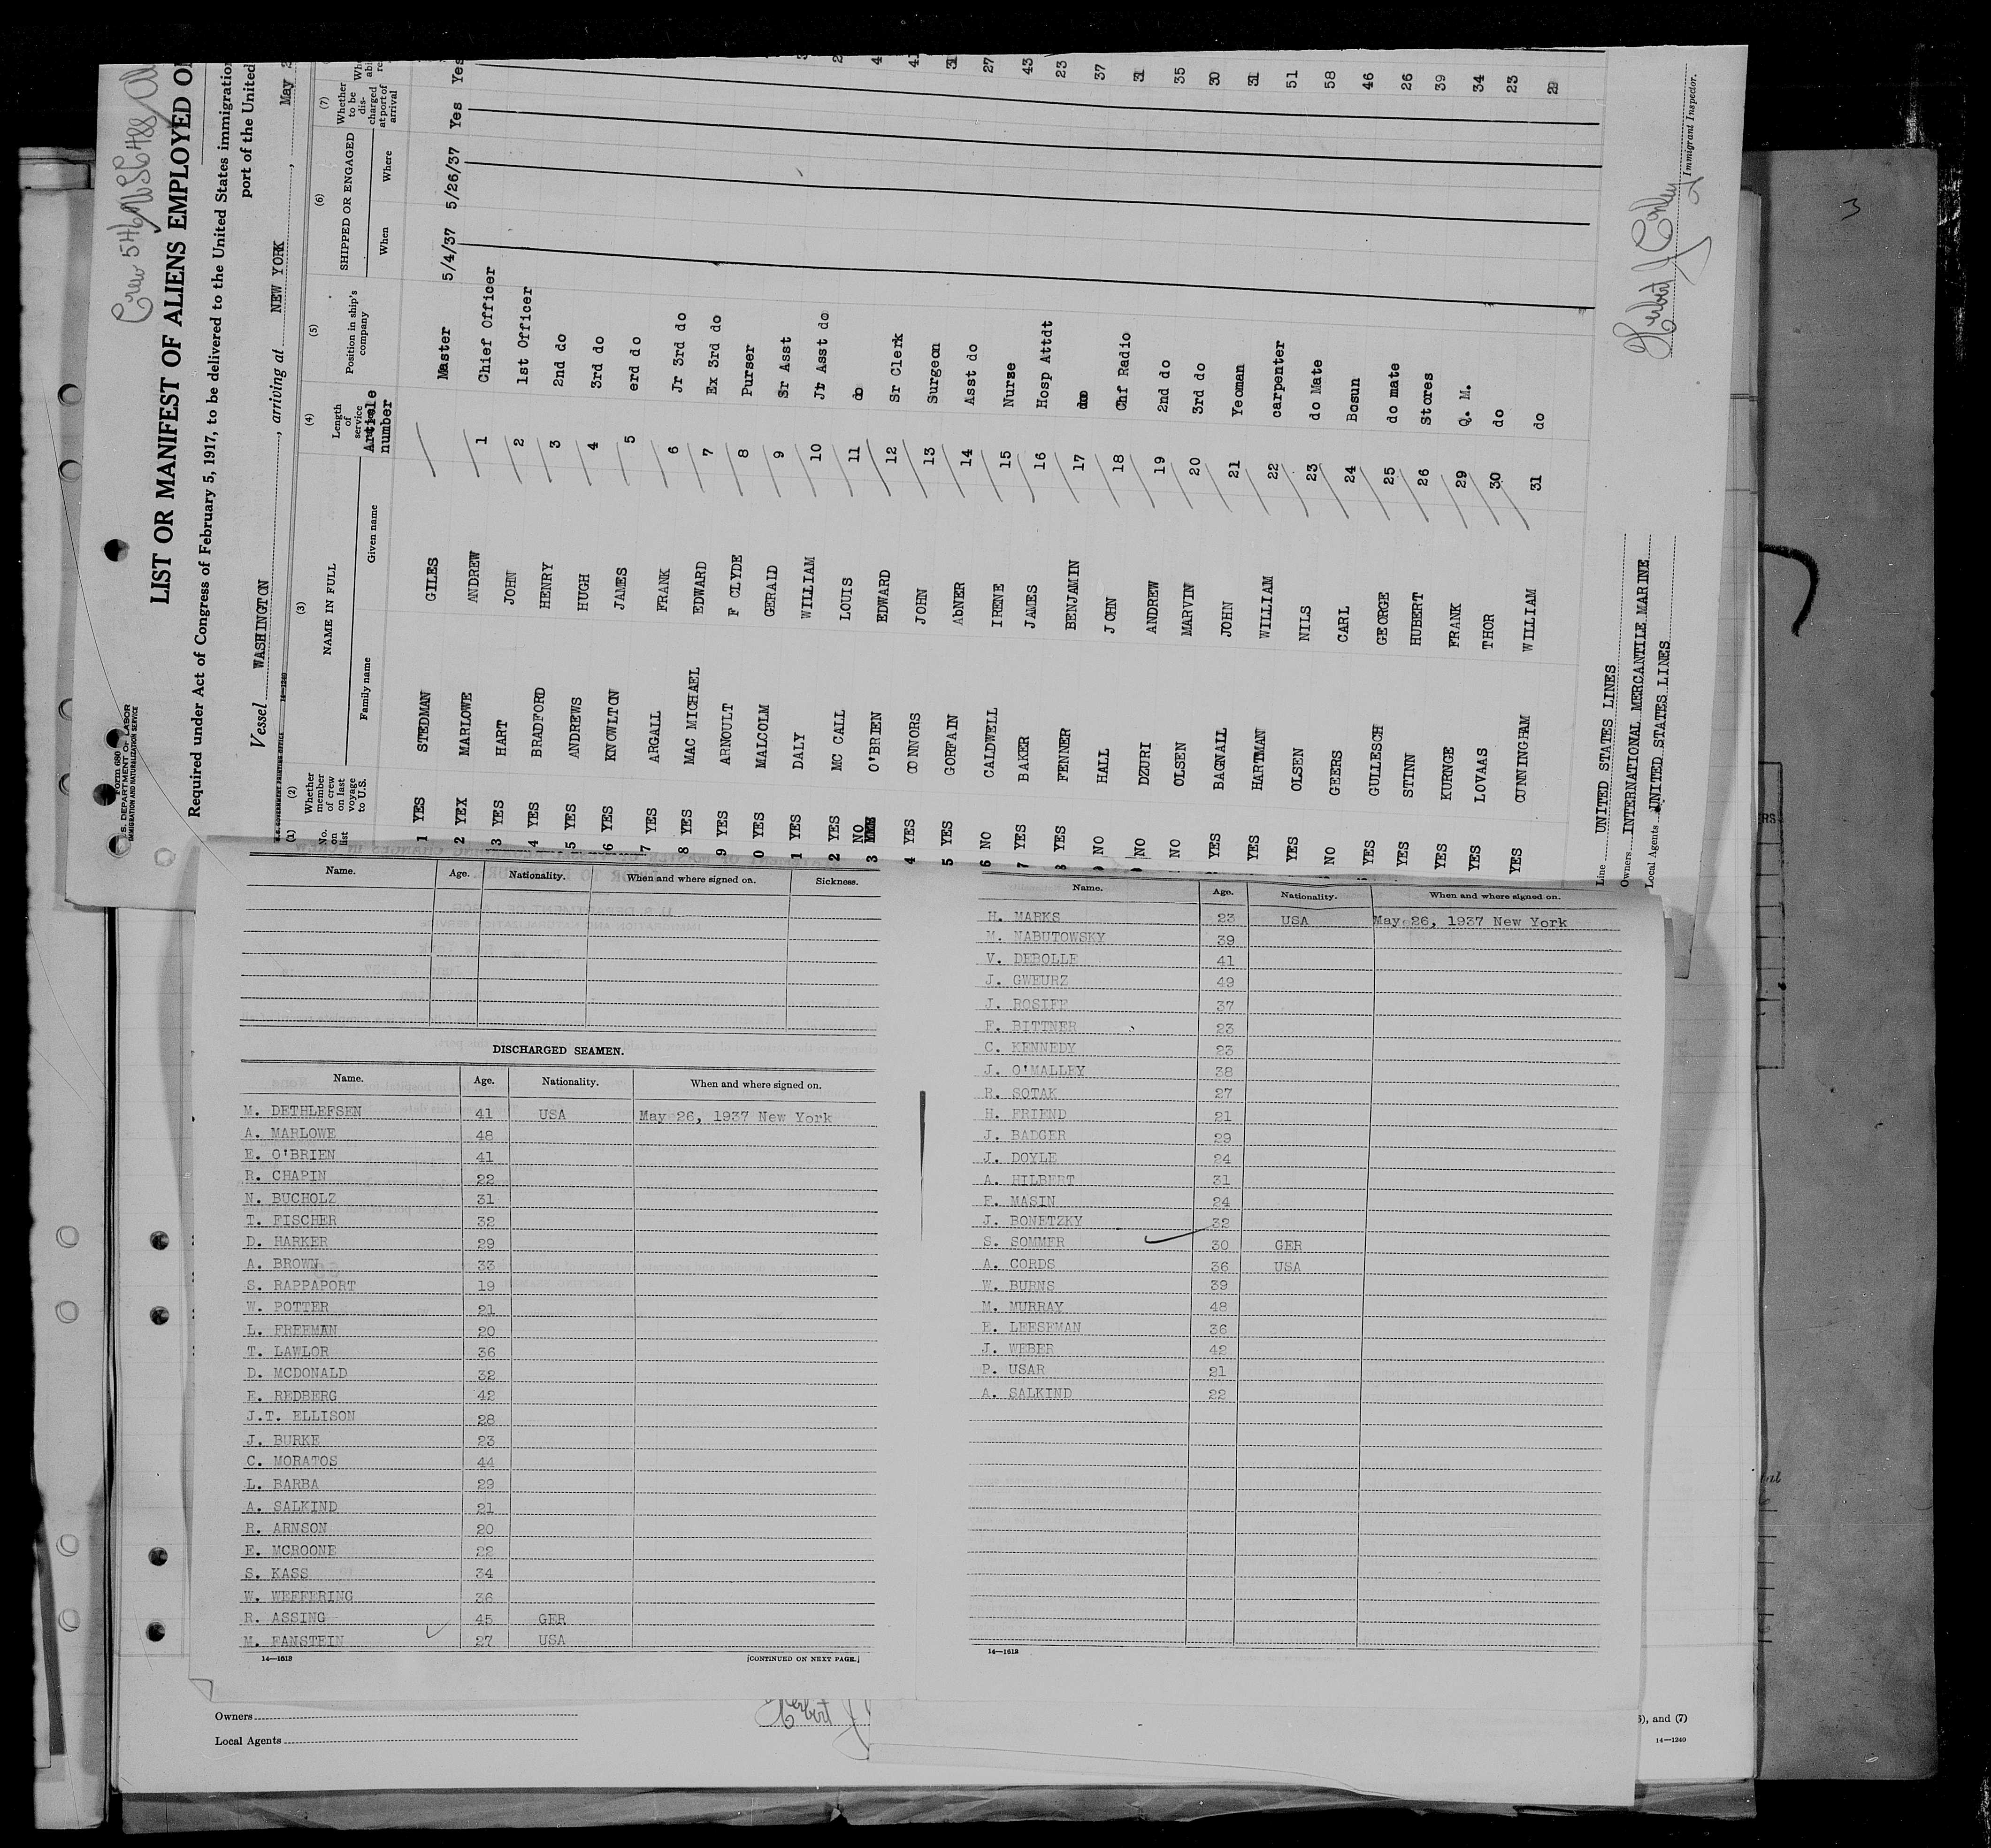 Crew
LIST OR MANIFEST OF ALIENS EMPLOYED O
Required under Act of Congress of February 5, 1917, to be delivered to the United States immigration
port of the United
Form 680
U.S. DEPARTMENT OF LABOR
IMMIGRATION AND NATURALIZATION SERVICE
Vessel WASHINGTON, arriving at NEW YORK, May 2
U.S. GOVERNMENT PRINTING OFFICE 14—1240
(1) No. on list
(2) Whether member of crew on last voyage to U.S.
(3) NAME IN FULL Family name Given name
(4) Length of service Article number
(5) Position in ship's company
(6) SHIPPED OR ENGAGED When Where
(7) Whether to be discharged at port of arrival
1 YES STEDMAN GILES Master 5/4/37 5/26/37 Yes Yes
2 YEX MARLOWE ANDREW 1 Chief Officer
3 YES HART JOHN 2 1st Officer
4 YES BRADFORD HENRY 3 2nd do
5 YES ANDREWS HUGH 4 3rd do
6 YES KNOWLTON JAMES 5 erd do
7 YES ARGALL FRANK 6 Jr 3rd do
8 YES MAC MICHAEL EDWARD 7 Ex 3rd do
9 YES ARNOULT F CLYDE 8 Purser
0 YES MALCOLM GERAID 9 Sr Asst
1 YES DALY WILLIAM 10 Jr Asst do
2 YES MC CALL LOUIS 11 do
3 NO O'BRIEN EDWARD 12 Sr Clerk
4 YES CONNORS JOHN 13 Surgeon 31
5 YES GORFAIN AbNER 14 Asst do 27
6 NO CALDWELL IRENE 15 Nurse 43
7 YES BAKER JAMES 16 Hosp Attdt 23
8 YES FENNER BENJAMIN 17 do 37
NO HALL JOHN 18 Chf Radio 31
NO DZURI ANDREW 19 2nd do 35
NO OLSEN MARVIN 20 3rd do 30
YES BAGNALL JOHN 21 Yeoman 31
YES HARTMAN WILLIAM 22 carpenter 51
YES OLSEN NILS 23 do Mate 58
NO GEERS CARL 24 Bosun 46
YES GULLESCH GEORGE 25 do mate 26
YES STINN HUBERT 26 Stores 39
YES KURNGE FRANK 29 Q. M. 34
YES LOVAAS THOR 30 do 23
YES CUNNINGHAM WILLIAM 31 do
Line UNITED STATES LINES
Owners INTERNATIONAL MERCANTILE MARINE
Local Agents UNITED STATES LINES
Herbert J Conley
Immigrant Inspector.
3
Name. Age. Nationality. When and where signed on. Sickness.
DISCHARGED SEAMEN.
Name. Age. Nationality. When and where signed on.
M. DETHLEFSEN 41 USA May 26, 1937 New York
A. MARLOWE 48
E. O'BRIEN 41
R. CHAPIN 22
N. BUCHOLZ 31
T. FISCHER 32
D. HARKER 29
A. BROWN 33
S. RAPPAPORT 19
W. POTTER 21
L. FREEMAN 20
T. LAWLOR 36
D. MCDONALD 32
E. REDBERG 42
J.T. ELLISON 28
J. BURKE 23
C. MORATOS 44
L. BARBA 29
A. SALKIND 21
R. ARNSON 20
E. MCROONE 22
S. KASS 34
W. WEFFERING 36
R. ASSING 45 GER
M. FANSTEIN 27 USA
14—1613 [CONTINUED ON NEXT PAGE.]
Name. Age. Nationality. When and where signed on.
H. MARKS 23 USA May 26, 1937 New York
M. NABUTOWSKY 39
V. DEBOLLE 41
J. GWEURZ 49
J. ROSIFF 37
F. BITTNER 23
C. KENNEDY 23
J. O'MALLEY 38
R. SOTAK 27
H. FRIEND 21
J. BADGER 29
J. DOYLE 24
A. HILBERT 31
F. MASIN 24
J. BONETZKY 32
S. SOMMER 30 GER
A. CORDS 36 USA
W. BURNS 39
M. MURRAY 48
E. LEESEMAN 36
J. WEBER 42
P. USAR 21
A. SALKIND 22
14—1612
Owners
Local Agents
Herbert J
), and (7)
14—1240